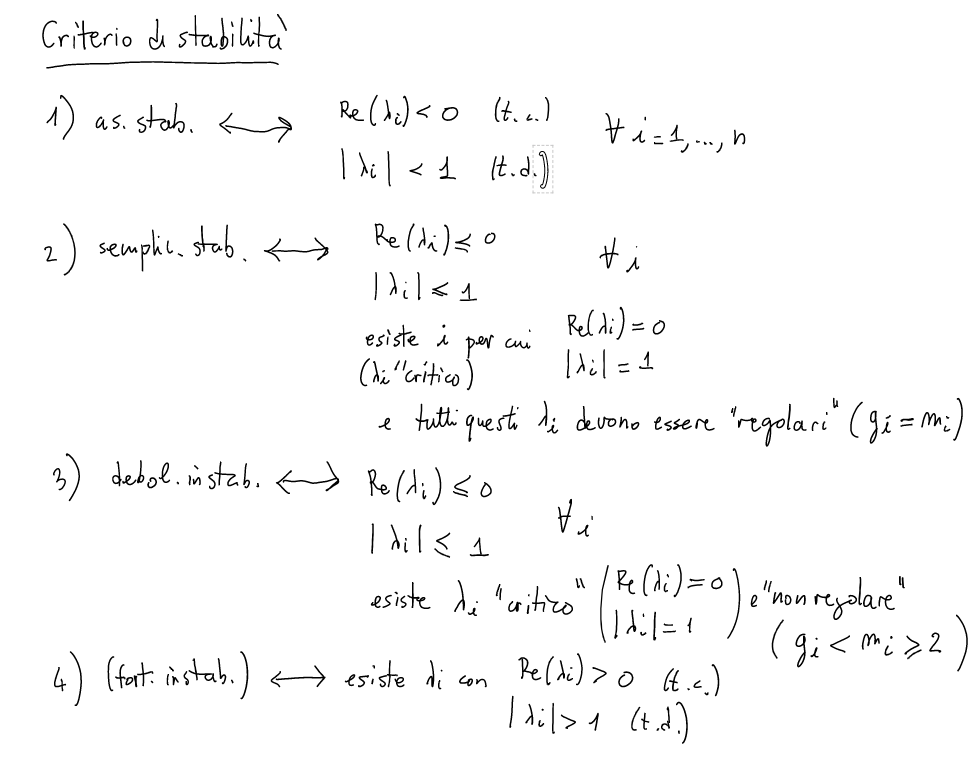 Criterio di stabilità
1) as. stab. ⟷ Re(λi) < 0 (t.c.) ∀ i = 1, ..., n
|λi| < 1 (t.d.)
2) semplic. stab. ⟷ Re(λi) ≤ 0 ∀ i
|λi| ≤ 1
esiste i per cui Re(λi) = 0
(λi "critico) |λi| = 1
e tutti questi λi devono essere "regolari" (gi = mi)
3) debol. instab. ⟷ Re(λi) ≤ 0 ∀ i
|λi| ≤ 1
esiste λi "critico" (Re(λi) = 0 |λi| = 1) e "non regolare"
(gi < mi ≥ 2)
4) (fort. instab.) ⟷ esiste λi con Re(λi) > 0 (t.c.)
|λi| > 1 (t.d.)